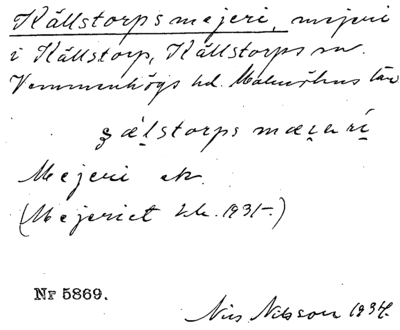 Källstorps mejeri, mejeri
i Källstorp, Källstorps sn.
Vemmenhögs hd. Malmöhus län
Mejeri ek.
(Mejeriet 1931.)
Nr 5869.
Nils Nilsson 1934.